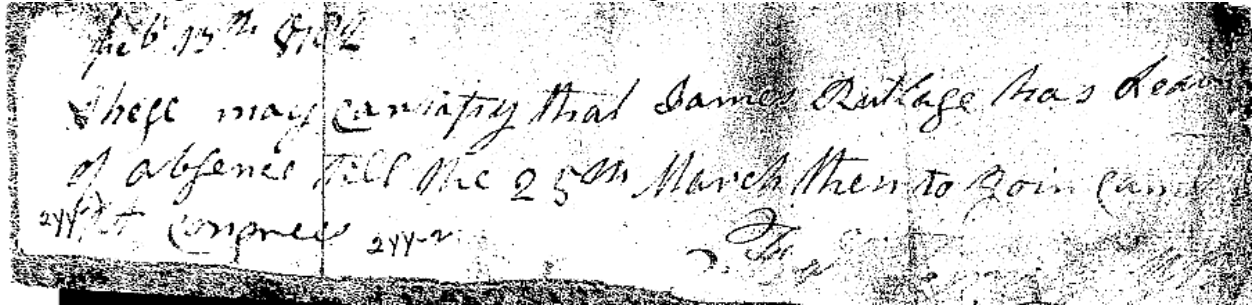 Feb 13th 1782
These may cartafy that James Rutlage has Leave
of absence till the 25th March then to Join camp
at congree
244-2